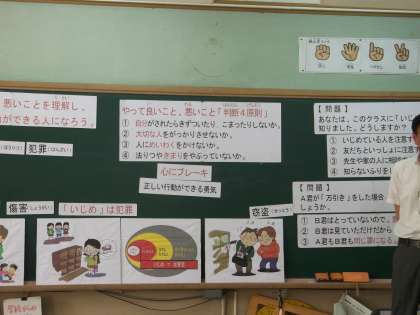 悪いことを理解し、
ができる人になろう。
犯罪(はんざい)
やって良いこと、悪いこと「判断4原則」
① 自分がされたらきずついたり、こまったりしないか。
② 大切な人をがっかりさせないか。
③ 人にめいわくをかけないか。
④ 法りつやきまりをやぶっていないか。
心にブレーキ
正しい行動ができる勇気
傷害(しょうがい)
「いじめ」は犯罪
窃盗(せっとう)
【 問題 】
あなたは、このクラスで「いじ
知りました。どうしますか?
① いじめている人を注意
② 友だちといっしょに注意す
③ 先生や家の人に相談
④ 知らないふりをし
【 問題 】
A君が「万引き」をした場合
しょうか。
① B君はとっていないので、
② B君は見ていただけだから
③ A君もB君も同じ罪になる。